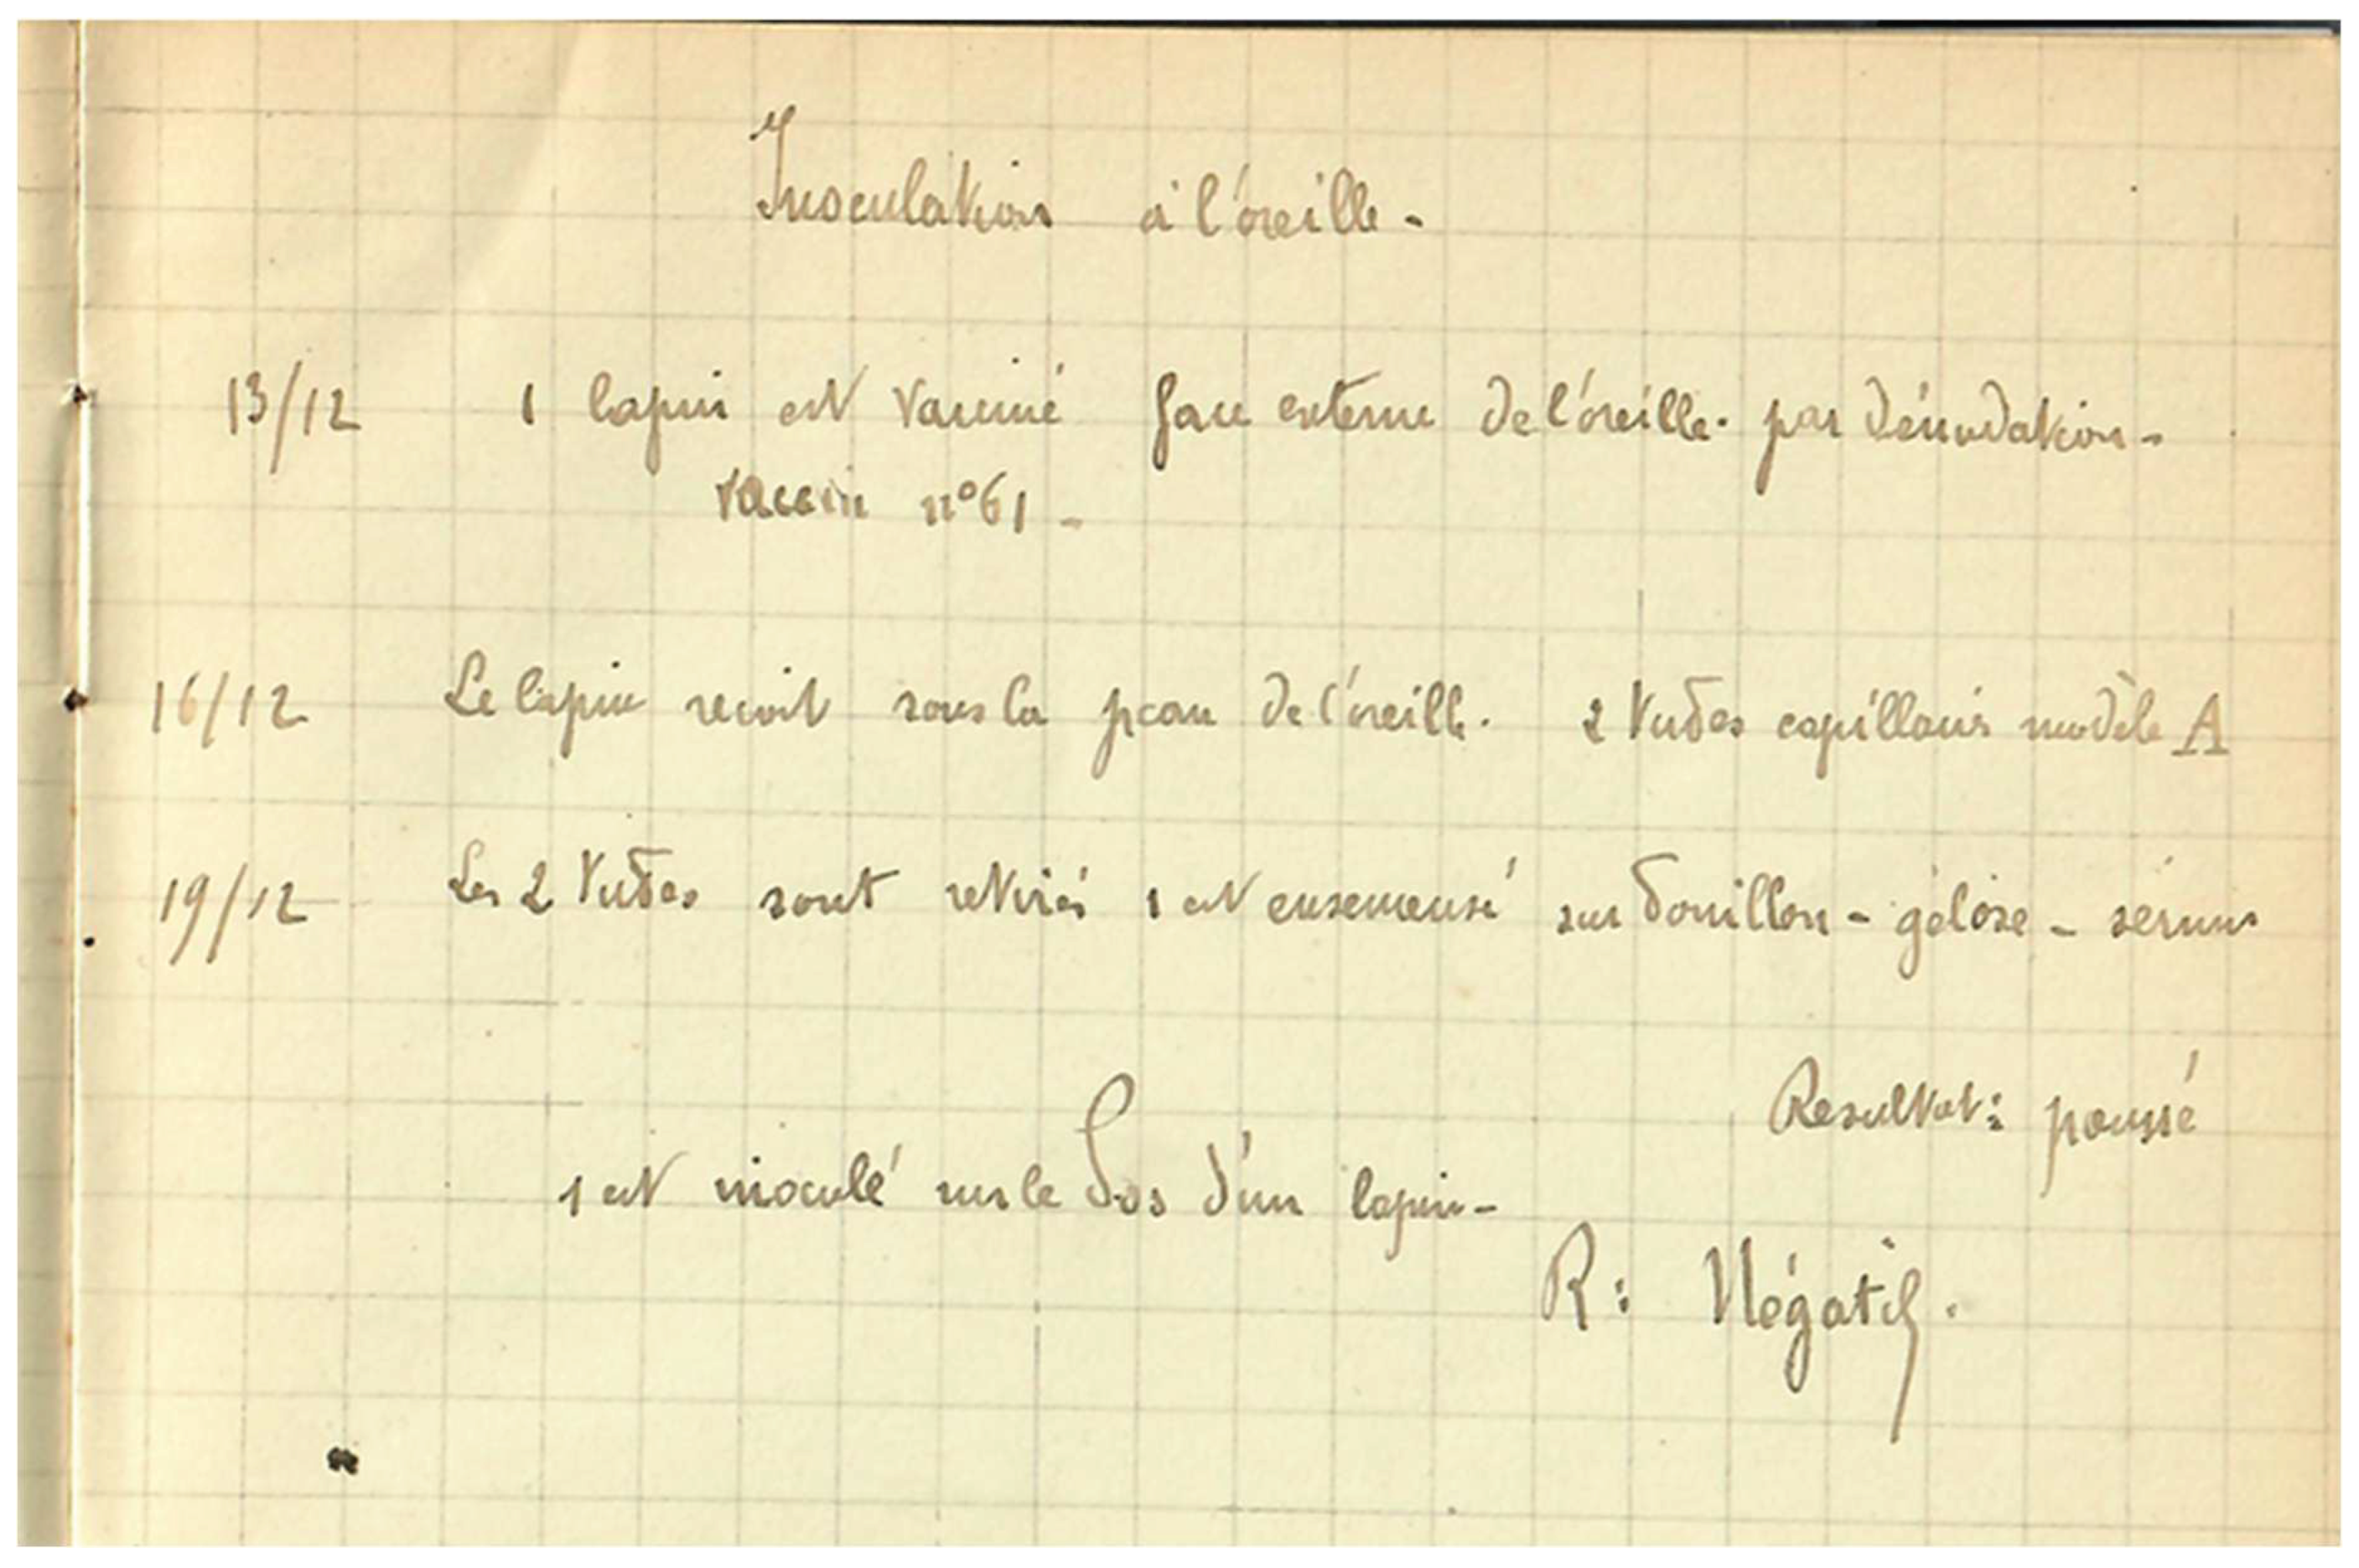 Inoculation à l'oreille -
13/12 1 lapin est vacciné face externe de l'oreille. par dénudation -
Vaccin n°61 -
16/12 Le lapin reçoit sous la peau de l'oreille. 2 tubes capillaires modèle A
19/12 Les 2 tubes sont retirés 1 est ensemensé sur bouillon - gélose - sérum
Resultat : poussé
1 est inoculé sur le dos d'un lapin -
R : Négatif.